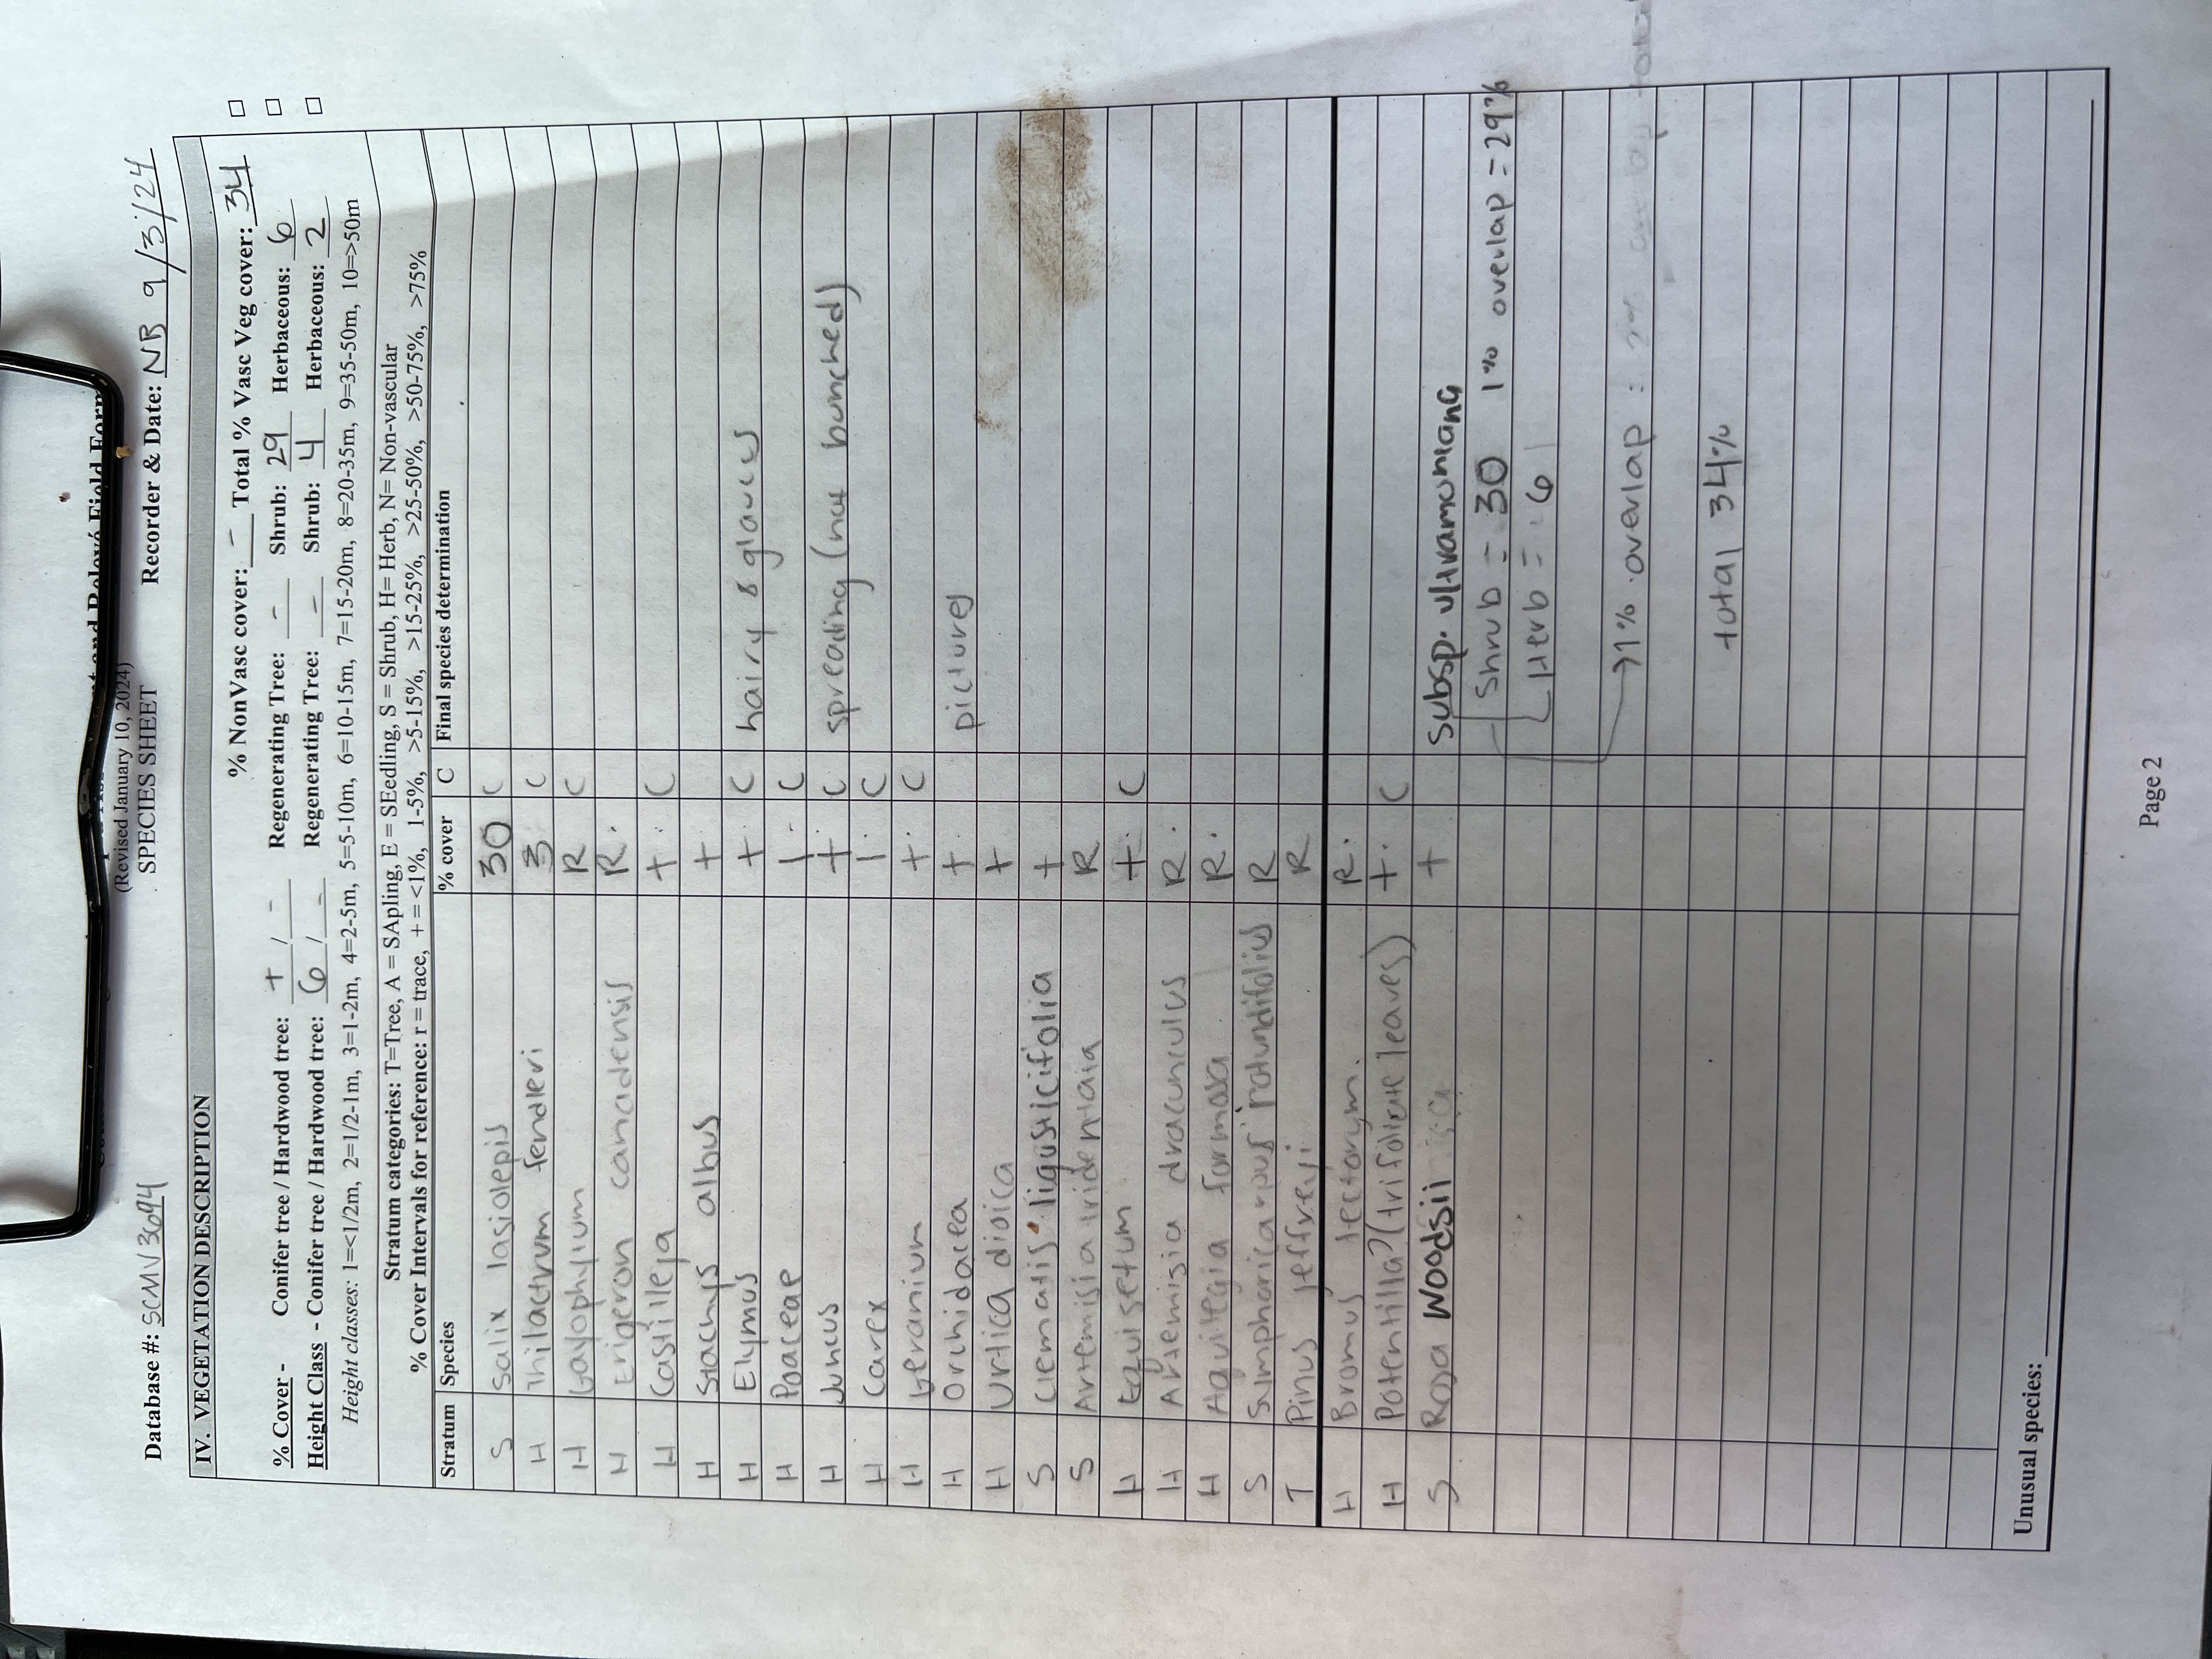 (Revised January 10, 2024)
SPECIES SHEET
Database #: SCMV3694 Recorder & Date: NB 9/3/24
IV. VEGETATION DESCRIPTION
% NonVasc cover: - Total % Vasc Veg cover: 34 □
% Cover - Conifer tree / Hardwood tree: + / - Regenerating Tree: - Shrub: 29 Herbaceous: 6 □
Height Class - Conifer tree / Hardwood tree: 6 / - Regenerating Tree: - Shrub: 4 Herbaceous: 2 □
Height classes: 1=<1/2m, 2=1/2-1m, 3=1-2m, 4=2-5m, 5=5-10m, 6=10-15m, 7=15-20m, 8=20-35m, 9=35-50m, 10=>50m
Stratum categories: T=Tree, A = SApling, E = SEedling, S = Shrub, H= Herb, N= Non-vascular
% Cover Intervals for reference: r = trace, + = <1%, 1-5%, >5-15%, >15-25%, >25-50%, >50-75%, >75%
Stratum Species % cover C Final species determination
S Salix lasiolepis 30 C
H Thilactrum fendleri 3 C
H Gayophylium R C
H Erigeron canadensis R.
H Castilleja + C
H Stachys albus +
H Elymus + C hairy & glaucus
H Poaceae 1 C
H Juncus + C spreading (not bunched)
H Carex 1 C
H Geranium + C
H Orchidacea + pictures
H Urtica dioica +
S Clematis ligusticifolia +
S Artemisia tridentata R
H Equisetum + C
H Artemisia dracunculus R.
H Aquilegia formosa R.
S Symphoricarpus rotundifolius R
T Pinus jeffreyi R
H Bromus tectorym. R.
H Potentilla? (trifoliate leaves) +. C
S Rosa woodsii + subsp. ultramontana
Shrub = 30 1% overlap = 29%
Herb = 6
→1% overlap
total 34%
Unusual species:
Page 2